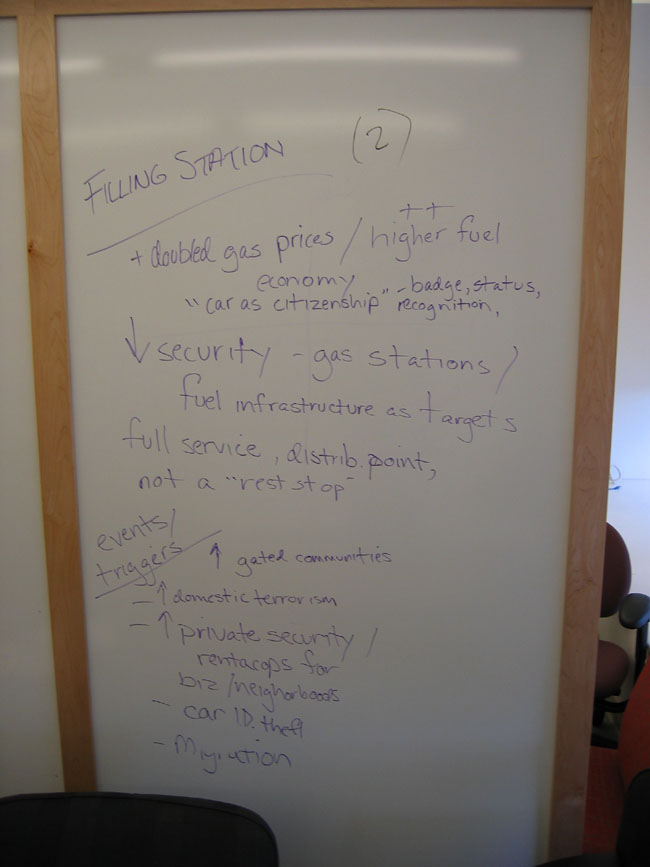 FILLING STATION (2)
++
+ doubled gas prices / higher fuel
economy
"car as citizenship" - badge, status,
recognition,
↓ security - gas stations /
fuel infrastructure as targets
full service, distrib. point,
not a "rest stop"
events/
triggers
↑ gated communities
- ↑ domestic terrorism
- ↑ private security /
rentacops for
biz/neighborhoods
- car ID theft
- Migration